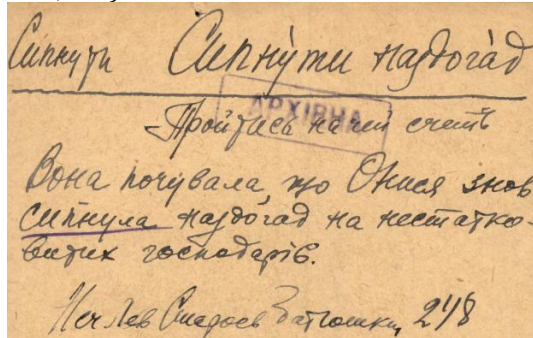 Сипнути Сипну́ти наздога́д
АРХІВНА
Пройтись на чей счет
Вона почувала, що Онися знов
сипнула наздогад на нестатко-
витих господарів.
Неч Лев 248